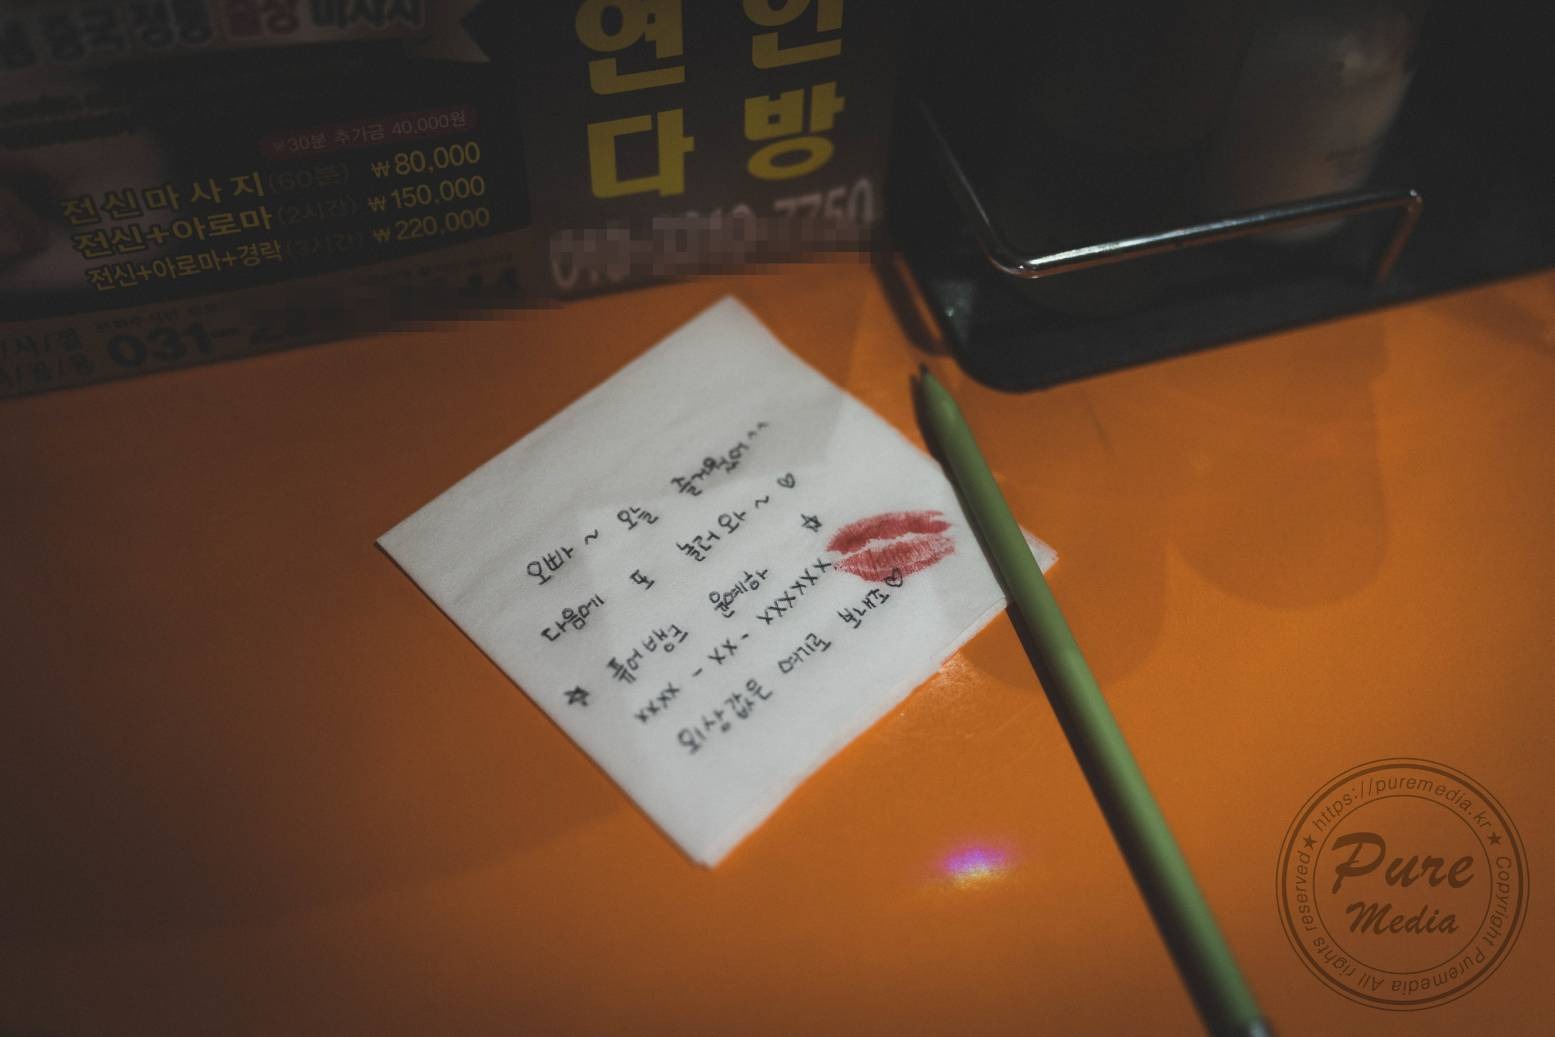 중국 정통 출장 마사지
30분 추가금 40,000원
전신마사지(60분) ₩80,000
전신+아로마(2시간) ₩150,000
전신+아로마+경락(3시간) ₩220,000
031-
연인
다방
오빠~ 오늘 즐거웠어^^
다음에 또 놀러와~♡
☆ 퓨어뱅크 윤예하 ☆
xxxx - xx - xxxxxx
외상값은 여기로 보내죠♡
Pure
Media
https://puremedia.kr ★ Copyright Puremedia All rights reserved ★